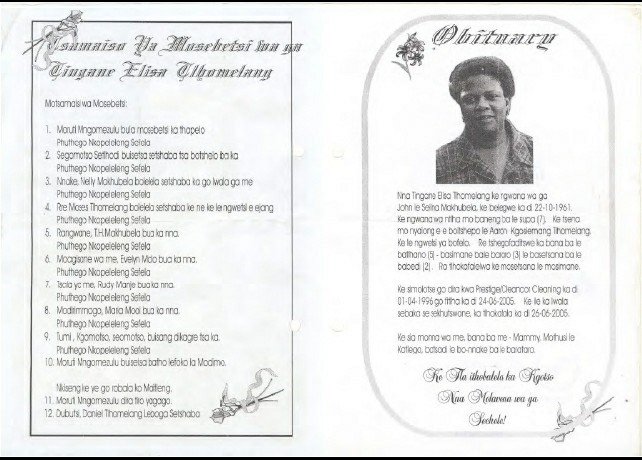 Tsamaiso Ya Mosebetsi wa ga
Tingane Elisa Tlhomelang
Motsamaisi wa Mosebetsi:
1. Moruti Mngomezulu bula mosebetsi ka thapelo
Phuthego Nkopeleleng Sefela
2. Segomotso Setlhodi buisetsa setshaba tsa botshelo iba ka
Phuthego Nkopeleleng Sefela
3. Nnake, Nelly Makhubela bolelela setshaba ka go lwala ga me
Phuthego Nkopeleleng Sefela
4. Rre Moses Tlhomelang bolelela setshaba ka ne ke le ngwetsi e ejang
Phuthego Nkopeleleng Sefela
5. Rangwane, T.H.Makhubela bua ka nna.
Phuthego Nkopeleleng Sefela
6. Moagisane wa me, Evelyn Mdo bua ka nna.
Phuthego Nkopeleleng Sefela
7. Tsala ya me, Rudy Manje bua ka nna.
Phuthego Nkopeleleng Sefela
8. Moditimmogo, Maria Mooi bua ka nna.
Phuthego Nkopeleleng Sefela
9. Tumi , Kgomotso, seomotso, buisang dikagre tsa ka.
Phuthego Nkopeleleng Sefela
10. Moruti Mngomezulu buisetsa batho lefoko la Modimo.
Nkiseng ke ye go robala ko Mafiteng.
11. Moruti Mngomezulu dira tiro yagago.
12. Dubutsi, Daniel Tlhomelang Leboga Setshaba
Obituary
Nna Tingane Elisa Tlhomelang ke ngwana wa ga
John le Selina Makhubela, ke belegwe ka di 22-10-1961.
Ke ngwana wa ntlha mo baneng ba le supa (7). Ke tseno
mo nyalong e e boitshepo le Aaron Kgosiemang Tlhomelang.
Ke le ngwetsi ya bofelo. Re tshegofaditswe ka bana ba le
batlhano (5) - basimane bale bararo (3) le basetsana ba le
babedi (2). Ra tlhokafalelwa ke mosetsana le mosimane.
Ke simolotse go dira kwa Prestige/Cleancor Cleaning ka di
01-04-1996 go fitlha ka di 24-06-2005. Ke ile ka lwala
sebaka se sekhutswane, ka tlhokafala ka di 26-06-2005.
Ke sia moma wa me, bana ba me - Mammy, Mothusi le
Katlego, batsadi le bo-nnake ba le balataro.
Ke Tla itlhobalela ka Kgotso
Nna Motaung wa ga
Sechele!